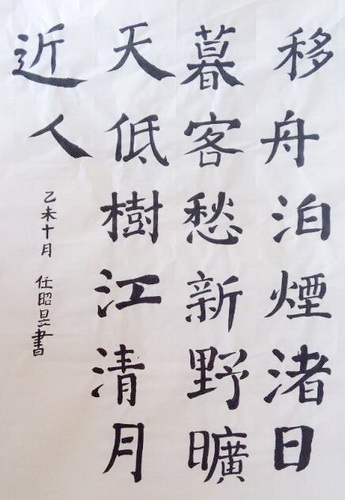 移舟泊煙渚日
暮客愁新野曠
天低樹江清月
近人
乙未十月 任昭昱書